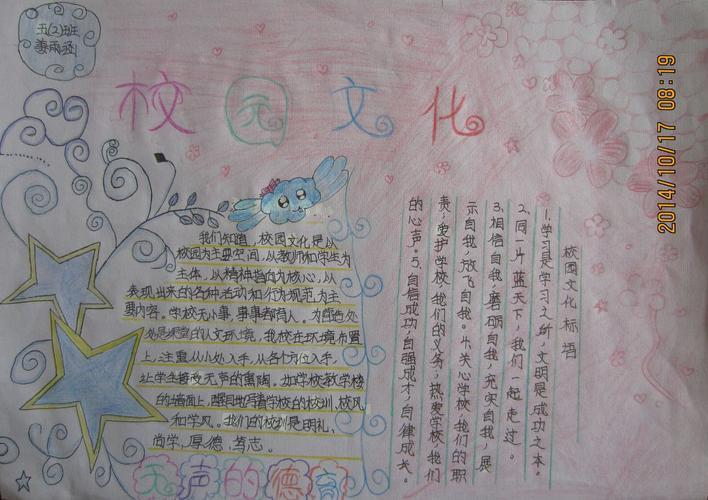 五(2)班
姜雨涵
校园文化
2014/10/17 08:19
我们知道，校园文化是以
校园为主要空间，以教师和学生为
主体，以精神指向为核心，以
表现出来的各种活动和行为规范为主
要内容。学校无小事，事事都育人。为营造处
处是课堂的人文环境，我校在环境布置
上，注重从小处入手，从各个方位入手，
让学生接受无声的熏陶。如学校教学楼
的墙面上，醒目地写着学校的校训，校风
和学风。我们的校训是明礼、
尚学，厚德，笃志。
无声的德育
校园文化标语
1.学习是学习之所，文明是成功之本。
2.同一片蓝天下，我们一起走过。
3.相信自我，磨砺自我，充实自我，展
示自我，放飞自我。4.关心学校，我们的职
责，爱护学校，我们的义务，热爱学校，我们
的心声。5、自信成功，自强成才，自律成长。